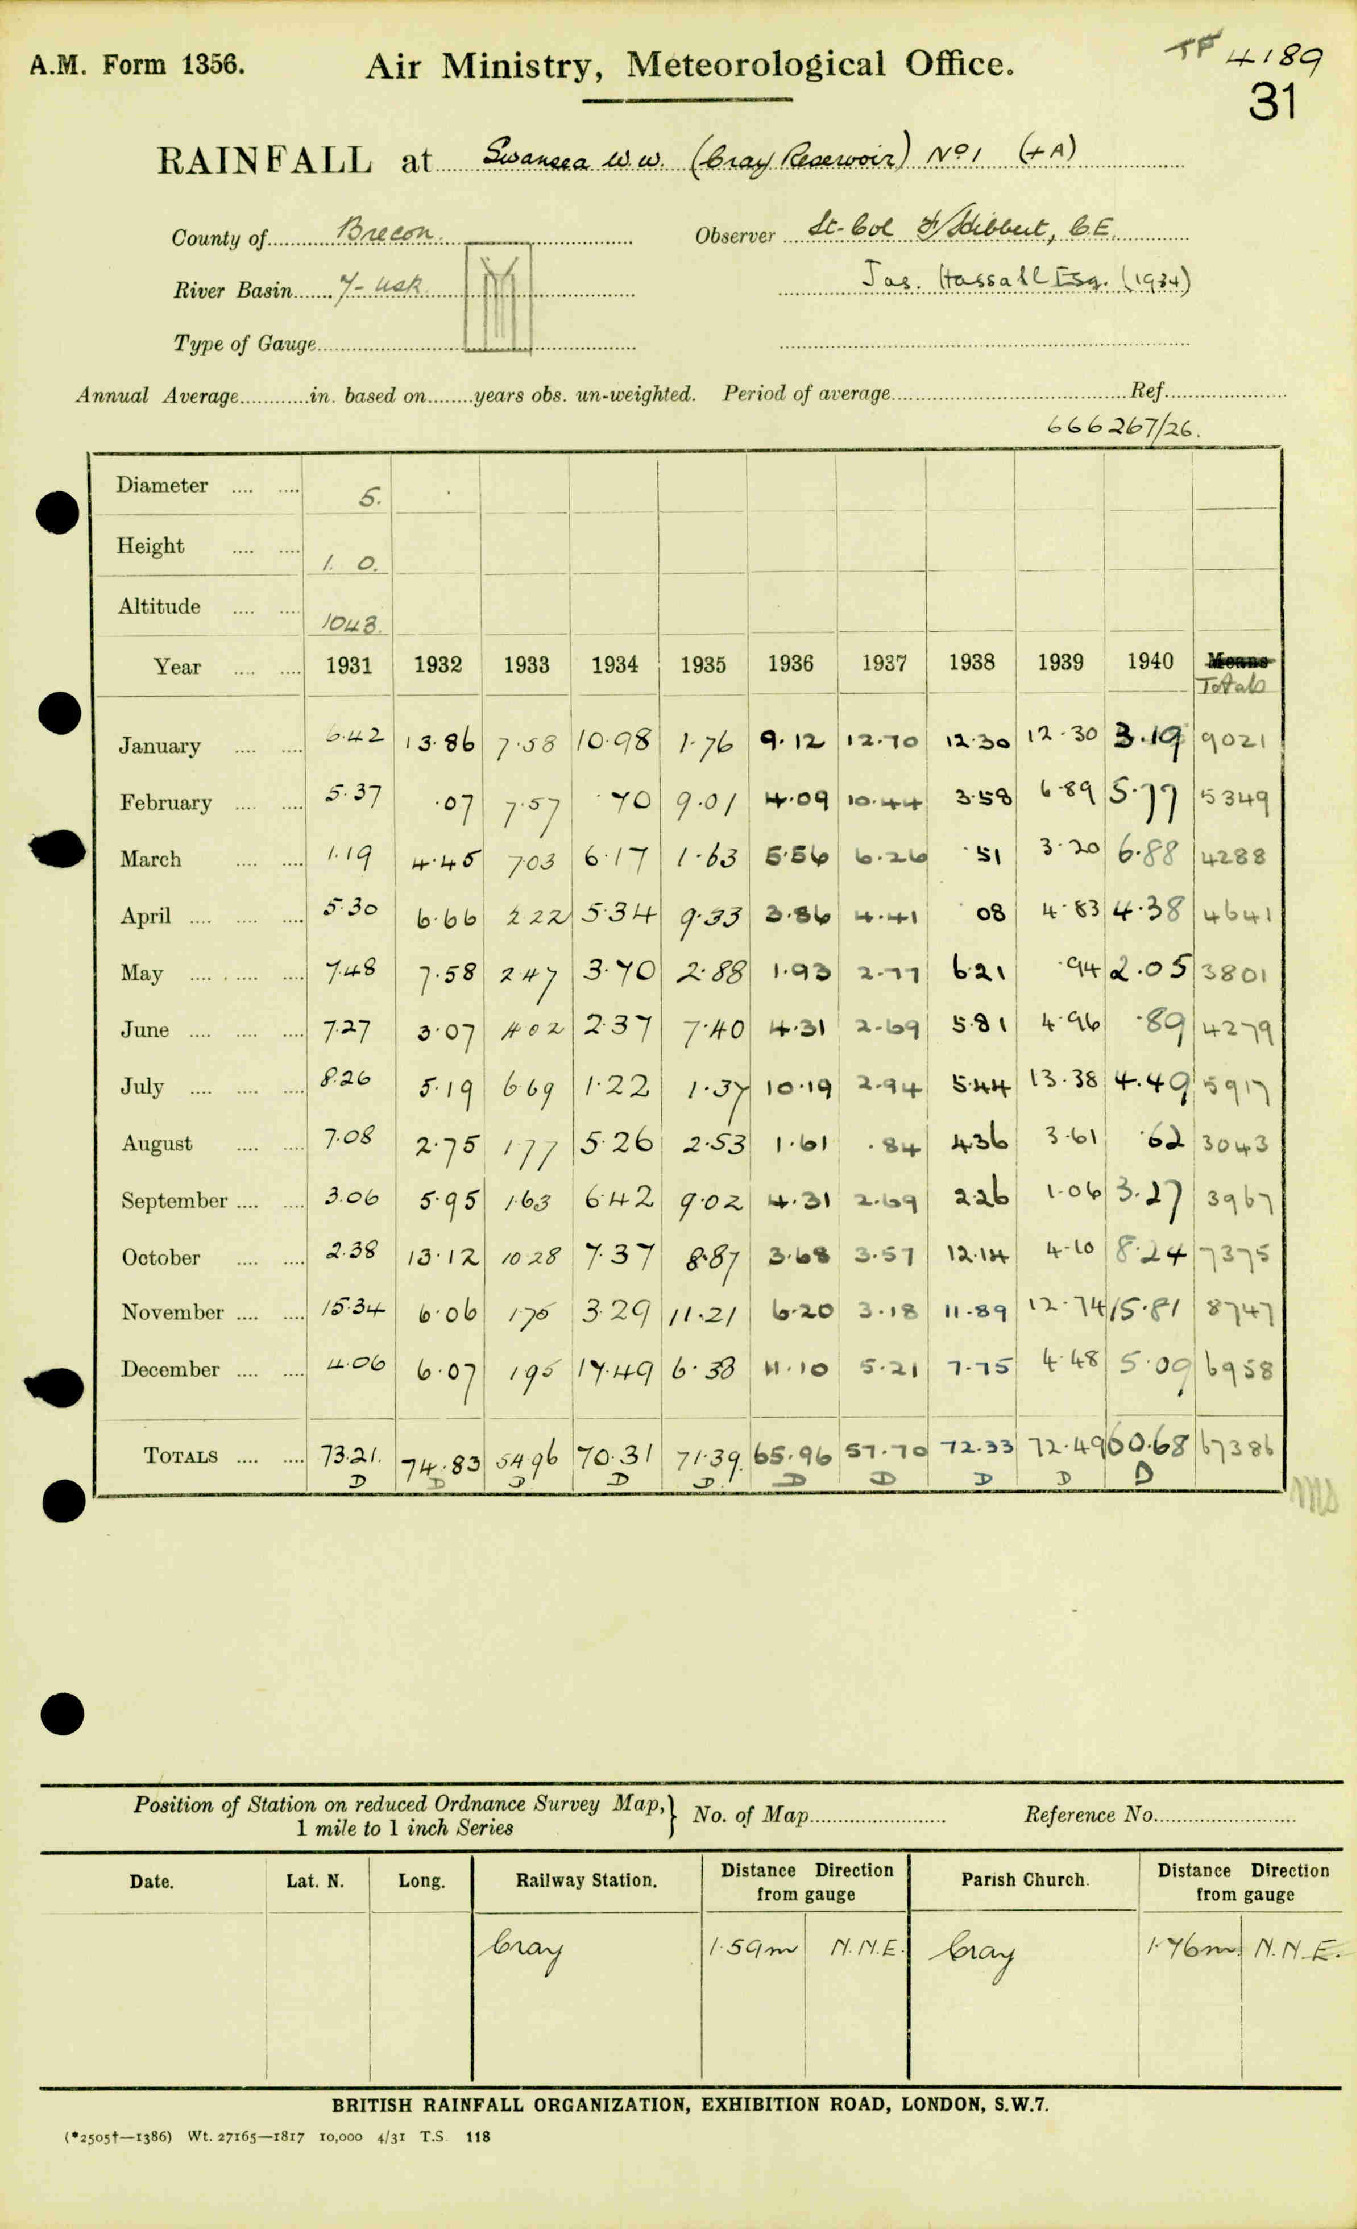 A.M. Form 1356. Air Ministry, Meteorological Office. TF 4189
31
RAINFALL at Swansea W.W. (Cray Reservoir) No 1 (+A)
County of Brecon. Observer Lt-Col Hibbert, C.E.
River Basin 7-Usk. Jas. Hassall Esq. (1934)
Type of Gauge
Annual Average in. based on years obs. un-weighted. Period of average Ref.
666267/26.
Diameter 5.
Height 1. 0.
Altitude 1043.
Year 1931 1932 1933 1934 1935 1936 1937 1938 1939 1940 Means Totals
January 6.42 13.86 7.58 10.98 1.76 9.12 12.70 12.30 12.30 3.19 9021
February 5.37 .07 7.57 .70 9.01 4.09 10.44 3.58 6.89 5.77 5349
March 1.19 4.45 7.03 6.17 1.63 5.56 6.26 .51 3.20 6.88 4288
April 5.30 6.66 2.22 5.34 9.33 3.86 4.41 08 4.83 4.38 4641
May 7.48 7.58 2.47 3.70 2.88 1.93 2.77 6.21 .94 2.05 3801
June 7.27 3.07 4.02 2.37 7.40 4.31 2.69 5.81 4.96 .89 4279
July 8.26 5.19 6.69 1.22 1.37 10.19 2.94 5.44 13.38 4.49 5917
August 7.08 2.75 1.77 5.26 2.53 1.61 .84 4.36 3.61 .62 3043
September 3.06 5.95 1.63 6.42 9.02 4.31 2.69 2.26 1.06 3.27 3967
October 2.38 13.12 10.28 7.37 8.87 3.68 3.57 12.14 4.10 8.24 7375
November 15.34 6.06 1.75 3.29 11.21 6.20 3.18 11.89 12.74 15.81 8747
December 4.06 6.07 1.95 17.49 6.38 11.10 5.21 7.75 4.48 5.09 6958
TOTALS 73.21. 74.83 54.96 70.31 71.39. 65.96 57.70 72.33 72.49 60.68 67386
D D D D D. D D D D D
MS
Position of Station on reduced Ordnance Survey Map, 1 mile to 1 inch Series } No. of Map Reference No.
Date. Lat. N. Long. Railway Station. Distance Direction from gauge Parish Church. Distance Direction from gauge
Cray 1.59m N.N.E. Cray 1.76m. N.N.E.
BRITISH RAINFALL ORGANIZATION, EXHIBITION ROAD, LONDON, S.W.7.
(*2505†—1386) Wt. 27165—1817 10,000 4/31 T.S. 118